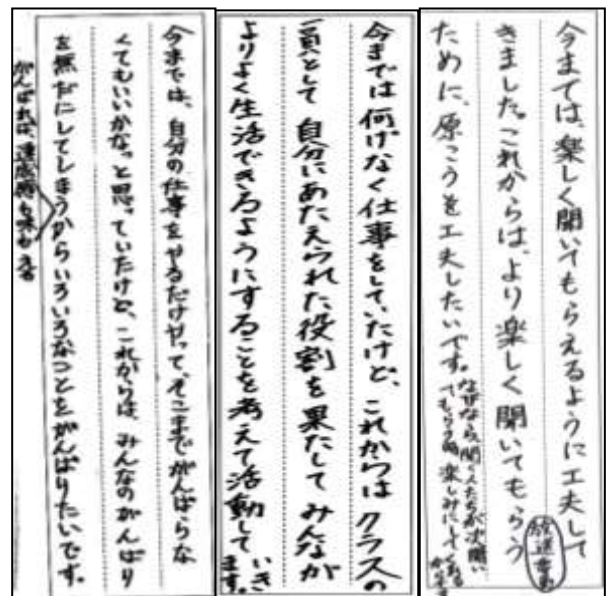 今までは、楽しく聞いてもらえるように工夫して
きました。これからは、より楽しく聞いてもらう
ために、原こうを工夫したいです。
なぜなら、聞く人たちが次聞い
てもらう時、楽しみにしてくれる
放送委員
今までは何げなく仕事をしていたけど、これからは クラスの
一員として 自分にあたえられた役割を果たして みんなが
よりよく生活できるようにすることを考えて活動して いき
ます。
今までは、自分の仕事をやるだけやって、そこまでがんばらな
くてもいいかなっと思っていたけど、これからは、みんなのがんばり
を無だにしてしまうからいろいろなことをがんばりたいです。
がんばれば、達成感も味わえる